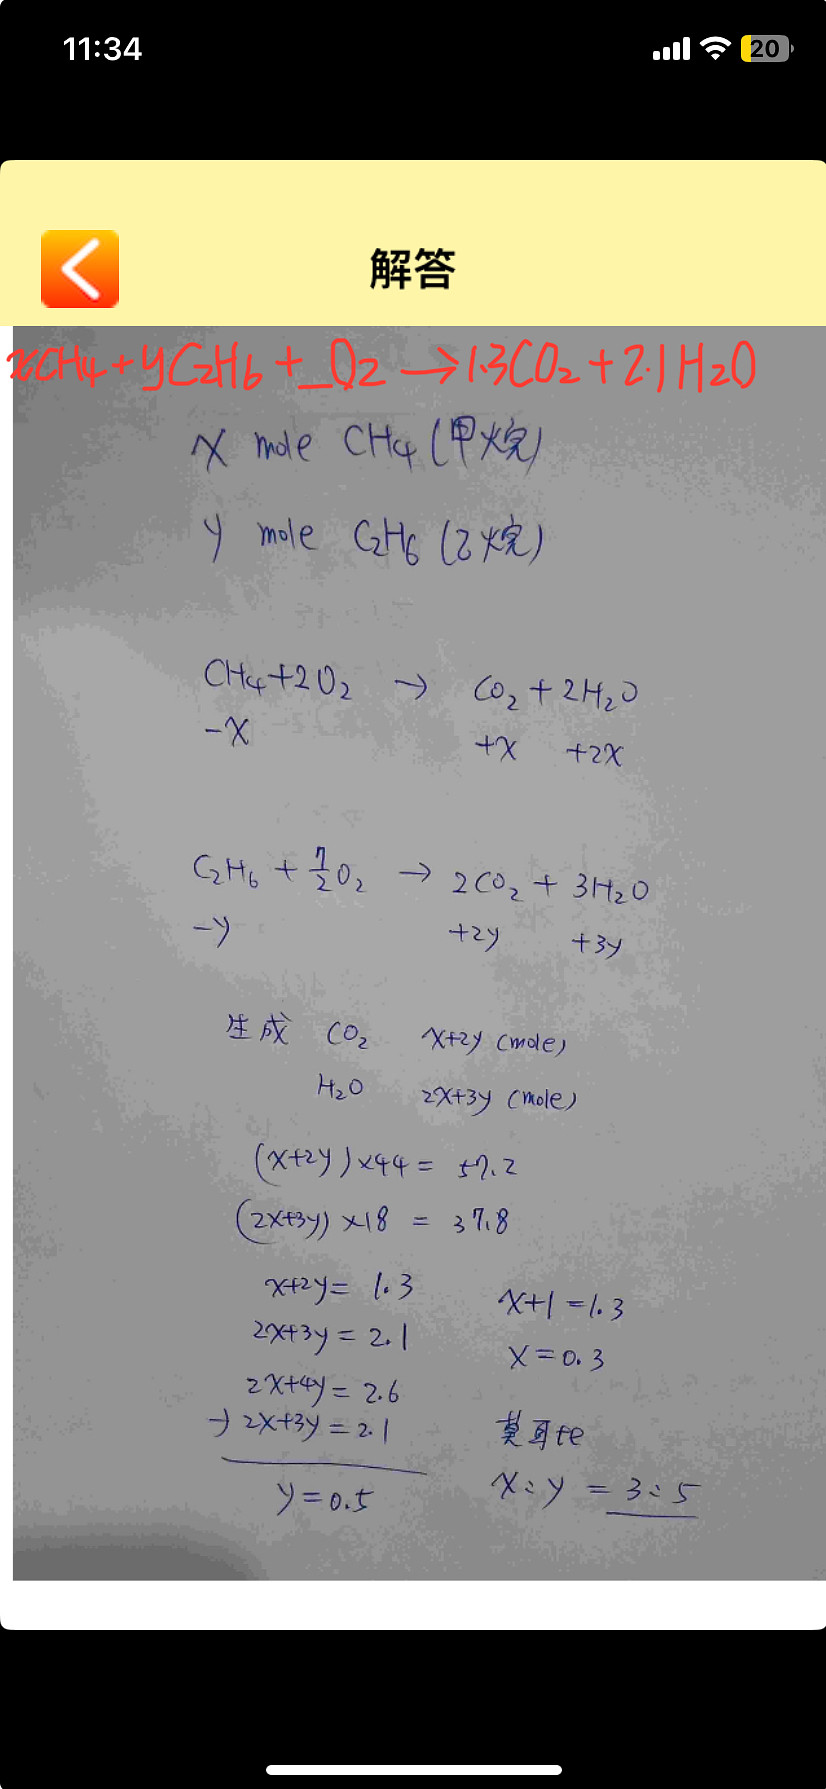 11:34
20
解答
xCH₄+yC₂H₆+_O₂→1.3CO₂+2.1H₂O
X mole CH₄(甲烷)
y mole C₂H₆(乙烷)
CH₄+2O₂ → CO₂+2H₂O
-X +X +2X
C₂H₆+7/2O₂ → 2CO₂+3H₂O
-y +2y +3y
生成 CO₂ X+2y (mole)
H₂O 2X+3y (mole)
(X+2y)×44=57.2
(2X+3y)×18=37.8
X+2y=1.3
2X+3y=2.1
2X+4y=2.6
-) 2X+3y=2.1
y=0.5
X+1=1.3
X=0.3
莫耳比
X:y=3:5